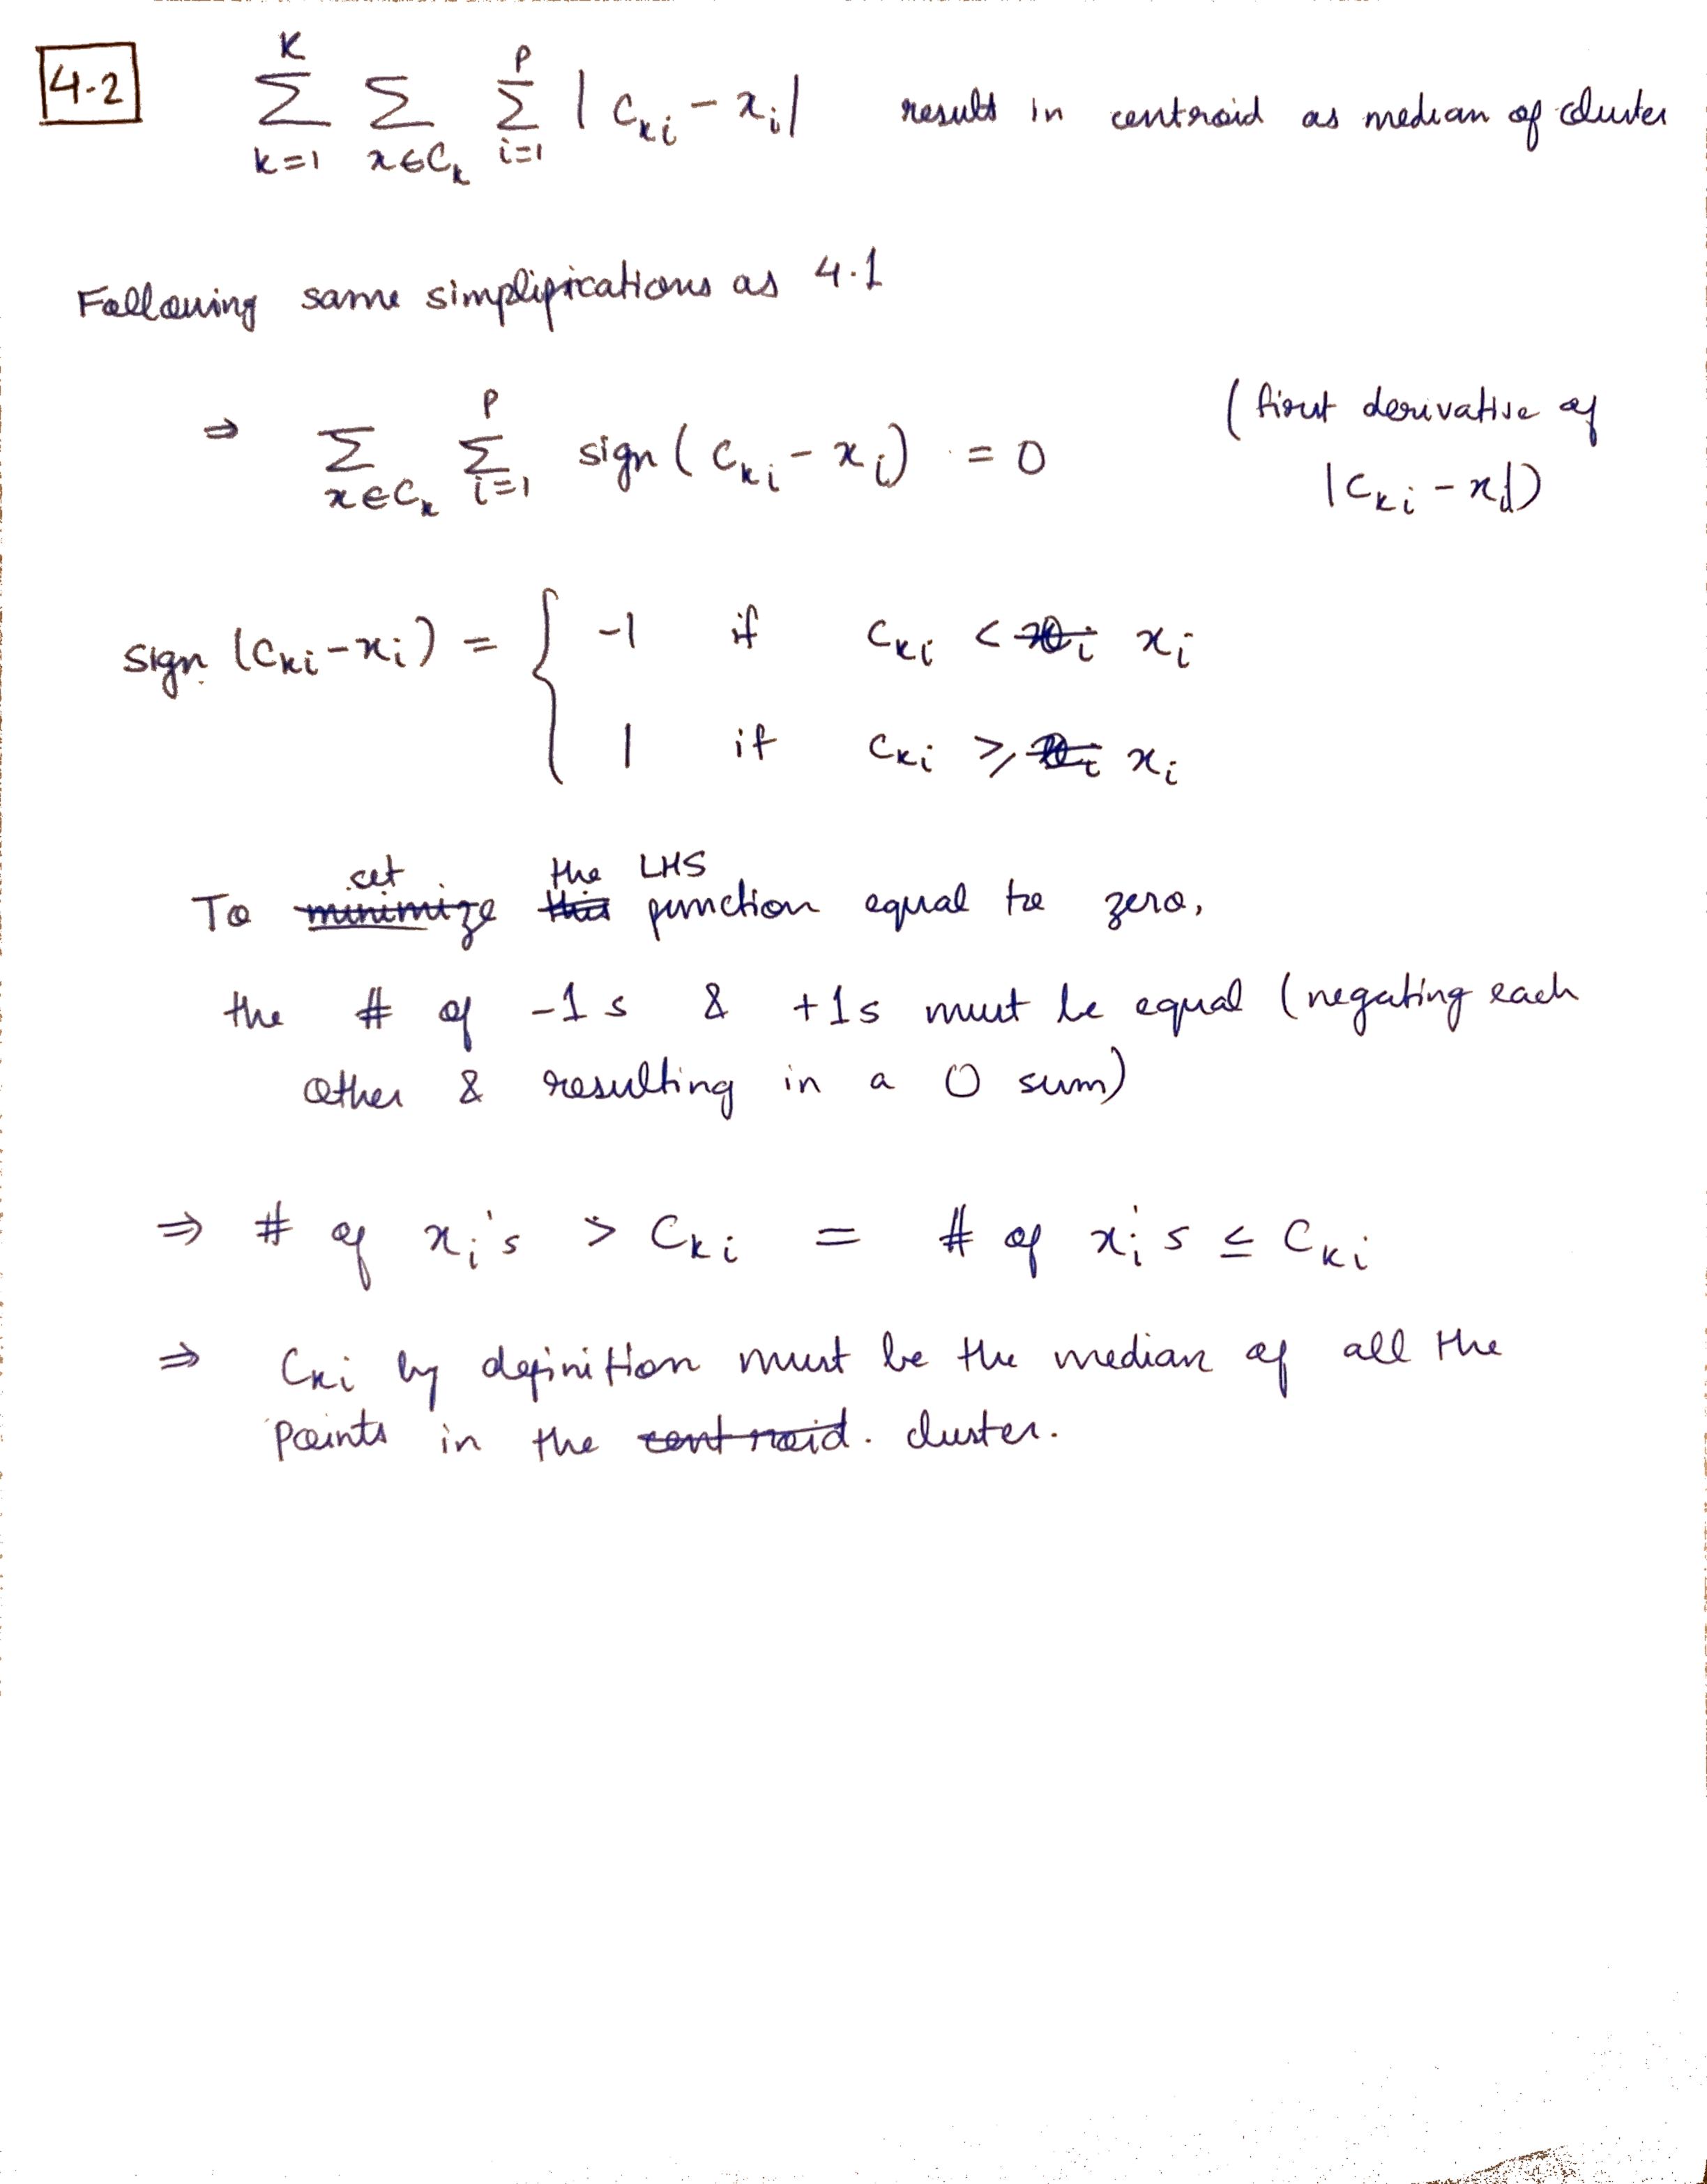 4.2 K∑k=1 ∑x∈Ck P∑i=1 |Cki - xi| results in centroid as median of cluster
Following same simplifications as 4.1
⇒ ∑x∈Ck P∑i=1 sign(Cki - xi) = 0 (first derivative of
|Cki - xi|)
sign (Cki-xi) = { -1 if Cki < xi
1 if Cki ≥ xi
To set the LHS function equal to zero,
the # of -1s & +1s must be equal (negating each
other & resulting in a 0 sum)
⇒ # of xi's > Cki = # of xi's ≤ Cki
⇒ Cki by definition must be the median of all the
points in the centroid. cluster.